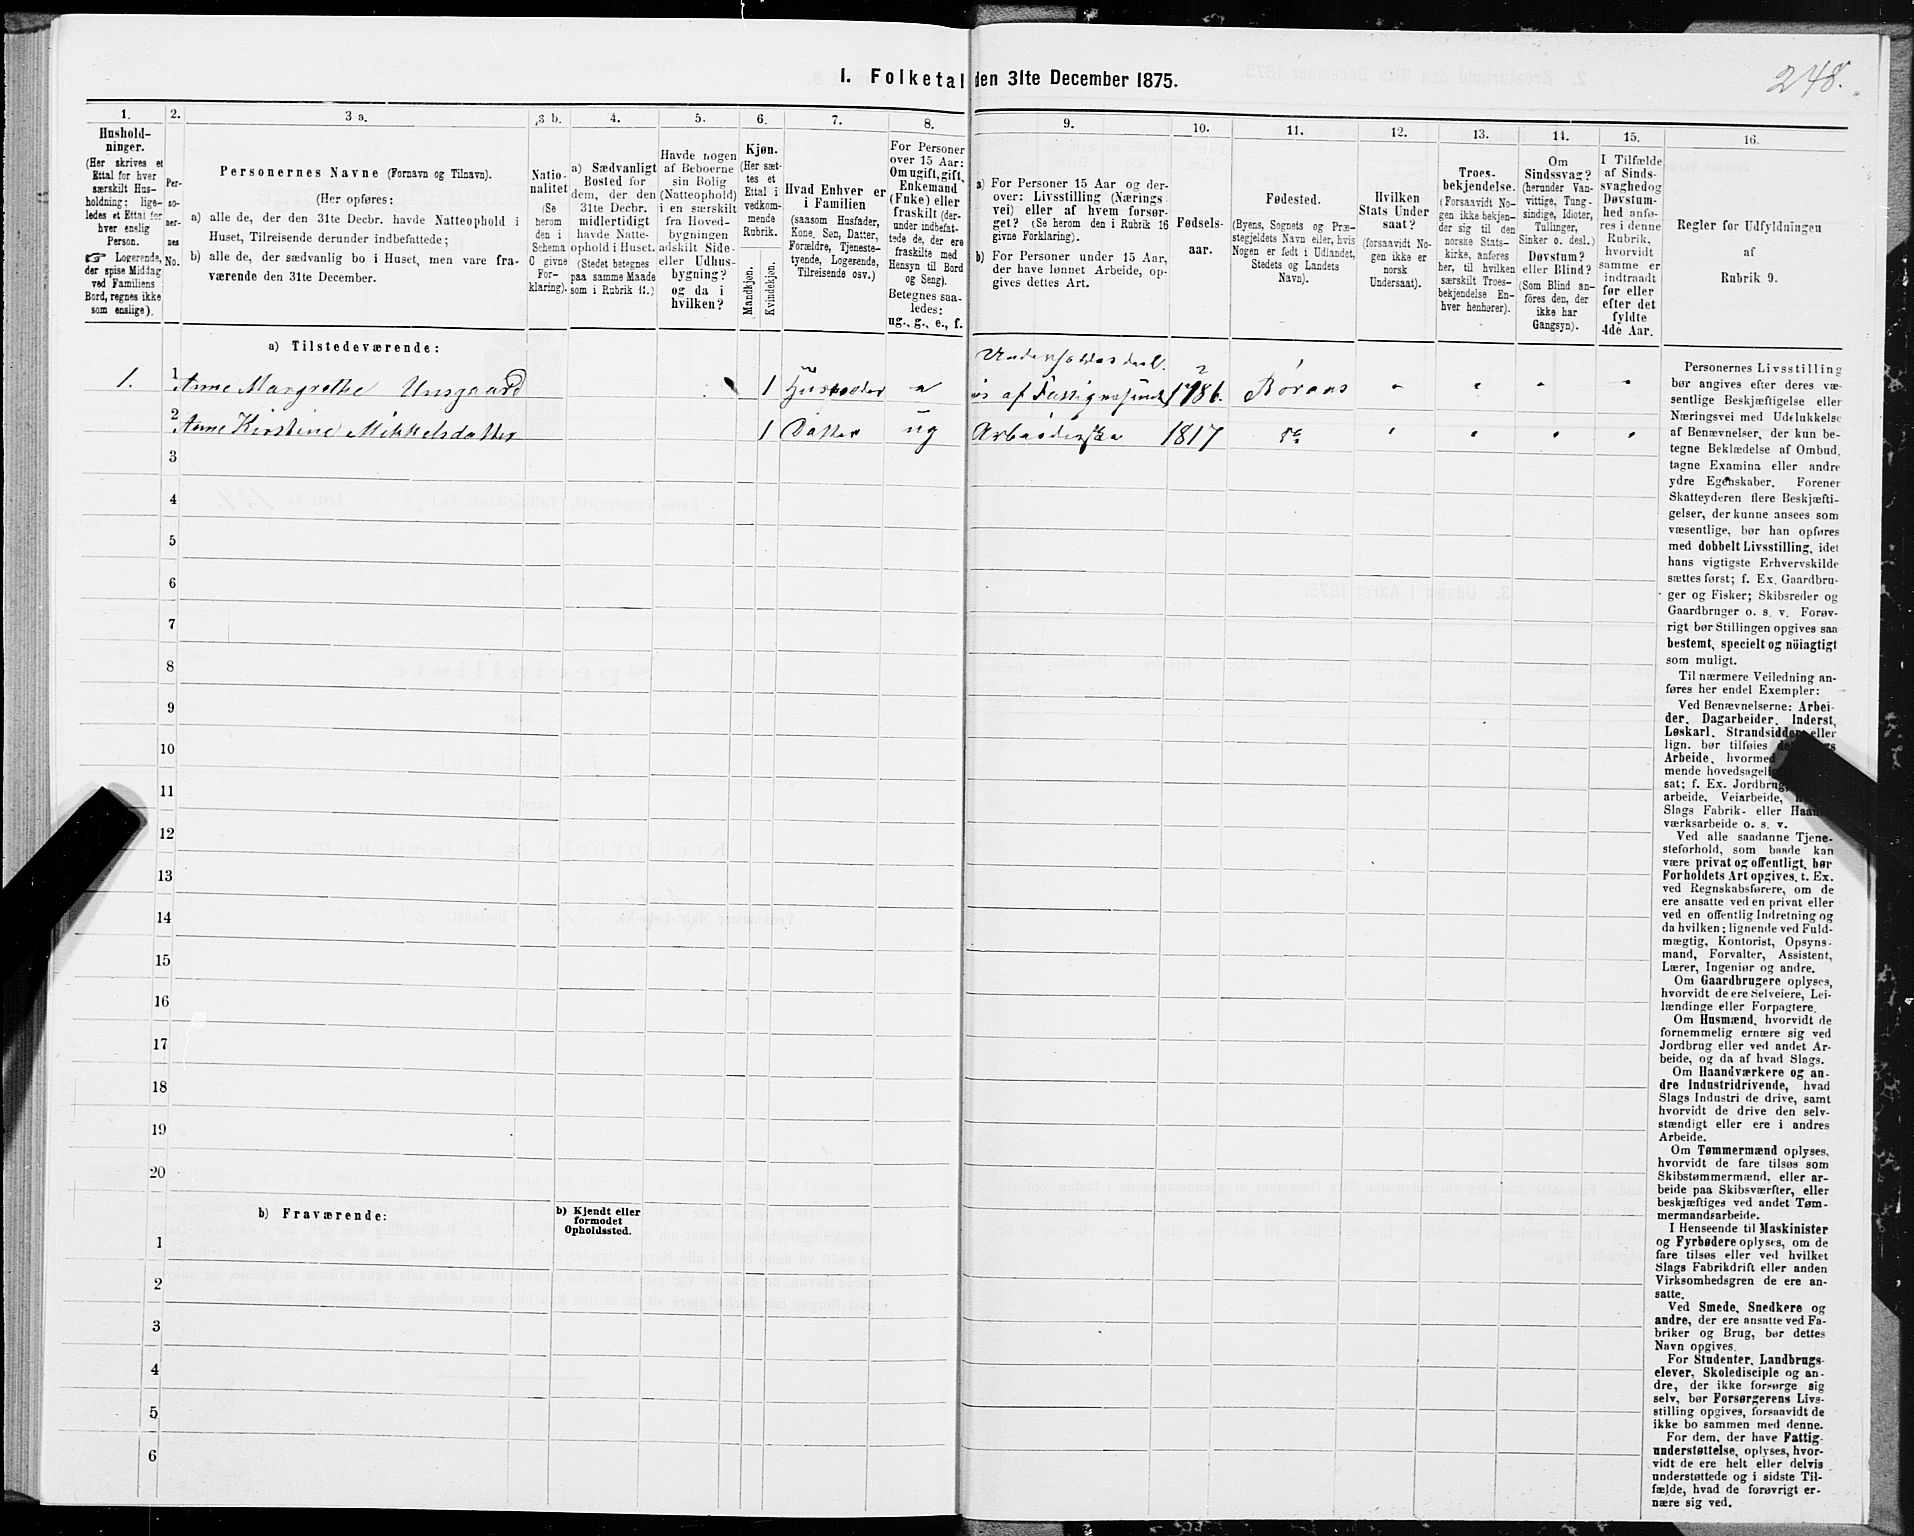 I. Folketal den 31te December 1875.
248.
1.
2.
3 a.
3 b.
4.
5.
6.
7.
8.
9.
10.
11.
12.
13.
14.
15.
16.
Hushold-
ninger.
(Her skrives et
Ettal for hver
særskilt Hus-
holdning; lige-
ledes et Ettal for
hver enslig
Person.
☞ Logerende,
der spise Middag
ved Familiens
Bord, regnes ikke
som enslige).
Per-
so-
ner-
nes
No.
Personernes Navne (Fornavn og Tilnavn).
(Her opføres:
a) alle de, der den 31te Decbr. havde Natteophold i
Huset, Tilreisende derunder indbefattede;
b) alle de, der sædvanlig bo i Huset, men vare fra-
værende den 31te December.
Natio-
nalitet
(Se
herom
den i
Schema
C givne
For-
klaring).
a) Sædvanligt
Bosted for
dem, der den
31te Decbr.
midlertidigt
havde Natte-
ophold i Huset.
(Stedet betegnes
paa samme Maade
som i Rubrik 11.)
Havde nogen
af Beboerne
sin Bolig
(Natteophold)
i en særskilt
fra Hoved-
bygningen
adskilt Side-
eller Udhus-
bygning?
og da i
hvilken?
Kjøn.
(Her sæt-
tes et
Ettal i
vedkom-
mende
Rubrik.
Mandkjøn.
Kvindekjøn.
Hvad Enhver er
i Familien
(saasom Husfader,
Kone, Søn, Datter,
Forældre, Tjeneste-
tyende, Logerende,
Tilreisende osv.)
For Personer
over 15 Aar:
Om ugift, gift,
Enkemand
(Enke) eller
fraskilt (der-
under indbefat-
tede de, der ere
fraskilte med
Hensyn til Bord
og Seng).
Betegnes saa-
ledes:
ug., g., e., f.
a) For Personer 15 Aar og der-
over: Livsstilling (Nærings
vei) eller af hvem forsør-
get? (Se herom den i Rubrik 16
givne Forklaring).
b) For Personer under 15 Aar,
der have lønnet Arbeide, op-
gives dettes Art.
Fødsels-
aar.
Fødested.
(Byens, Sognets og Præ-
stegjeldets Navn eller, hvis
Nogen er født i Udlandet,
Stedets og Landets
Navn).
Hvilken
Stats Under
saat?
(forsaavidt No-
gen ikke er
norsk
Undersaat).
Troes-
bekjendelse.
(Forsaavidt No-
gen ikke bekjen-
der sig til den
norske Stats-
kirke, anføres
her, til hvilken
særskilt Troes-
bekjendelse En-
hver henhører).
Om
Sindssvag?
(herunder Van-
vittige, Tung-
sindige, Idioter,
Tullinger,
Sinker o. desl.)
Døvstum?
eller Blind?
(Som Blind an-
føres den, der
ikke har
Gangsyn).
I Tilfælde
af Sinds-
svaghed og
Døvstum-
hed anfø-
res i denne
Rubrik,
hvorvidt
samme er
indtraadt
før eller
efter det
fyldte
4de Aar.
Regler for Udfyldningen
af
Rubrik 9.
a) Tilstedeværende:
1. 1 Anne Margrethe Unsgaard 1 Husmoder e Underholdes deel-
vis af Fattigvæsenet 1786. Boraas
2 Anne Kirstine Mikkelsdatter 1 Datter ug Arbeiderske 1817 do
3
4
5
6
7
8
9
10
11
12
13
14
15
16
17
18
19
20
b) Fraværende:
b) Kjendt eller
formodet
Opholdssted.
1
2
3
4
5
6
Personernes Livsstilling
bør angives efter deres væ-
sentlige Beskjæftigelse eller
Næringsvei med Udelukkelse
af Benævnelser, der kun be-
tegne Beklædelse af Ombud,
tagne Examina eller andre
ydre Egenskaber. Forener
Skatteyderen flere Beskjæfti-
gelser, der kunne ansees som
væsentlige, bør han opføres
med dobbelt Livsstilling, idet
hans vigtigste Erhvervskilde
sættes først; f. Ex. Gaardbru-
ger og Fisker; Skibsreder og
Gaardbruger o. s. v. Forøv-
rigt bør Stillingen opgives saa
bestemt, specielt og nöiagtigt
som muligt.
Til nærmere Veiledning an-
føres her endel Exempler:
Ved Benævnelserne: Arbei-
der, Dagarbeider, Inderst,
Løskarl, Strandsidder eller
lign. bør tilføies
Arbeide, hvormed
mende hovedsagelig
sat; f. Ex. Jordbrug,
arbeide, Veiarbeide,
Slags Fabrik- eller Haand-
værksarbeide o. s. v.
Ved alle saadanne Tjene-
steforhold, som baade kan
være privat og offentligt, bør
Forholdets Art opgives, t. Ex.
ved Regnskabsførere, om de
ere ansatte ved en privat eller
ved en offentlig Indretning og
da hvilken; lignende ved Fuld-
mægtig, Kontorist, Opsyns-
mand, Forvalter, Assistent,
Lærer, Ingeniør og andre.
Om Gaardbrugere oplyses,
hvorvidt de ere Selveiere, Lei-
lændinge eller Forpagtere.
Om Husmænd, hvorvidt de
fornemmelig ernære sig ved
Jordbrug eller ved andet Ar-
beide, og da af hvad Slags.
Om Haandværkere og an-
dre Industridrivende, hvad
Slags Industri de drive, samt
hvorvidt de drive den selv-
stændigt eller ere i andres
Arbeide.
Om Tømmermænd oplyses,
hvorvidt de fare tilsøs som
Skibstømmermænd, eller ar-
beide paa Skibsværfter, eller
beskjæftiges ved andet Tøm-
mermandsarbeide.
I Henseende til Maskinister
og Fyrbødere oplyses, om de
fare tilsøs eller ved hvilket
Slags Fabrikdrift eller anden
Virksomhedsgren de ere an-
satte.
Ved Smede, Snedkere og
andre, der ere ansatte ved Fa-
briker og Brug, bør dettes
Navn opgives.
For Studenter, Landbrugs-
elever, Skoledisciple og an-
dre, der ikke forsørge sig
selv, bør Forsørgerens Livs-
stilling opgives, forsaavidt de
ikke bo sammen med denne.
For dem, der have Fattig-
understøttelse, oplyses, hvor-
vidt de ere helt eller delvis
understøttede og i sidste Til-
fælde, hvad de forøvrigt er-
nære sig ved.